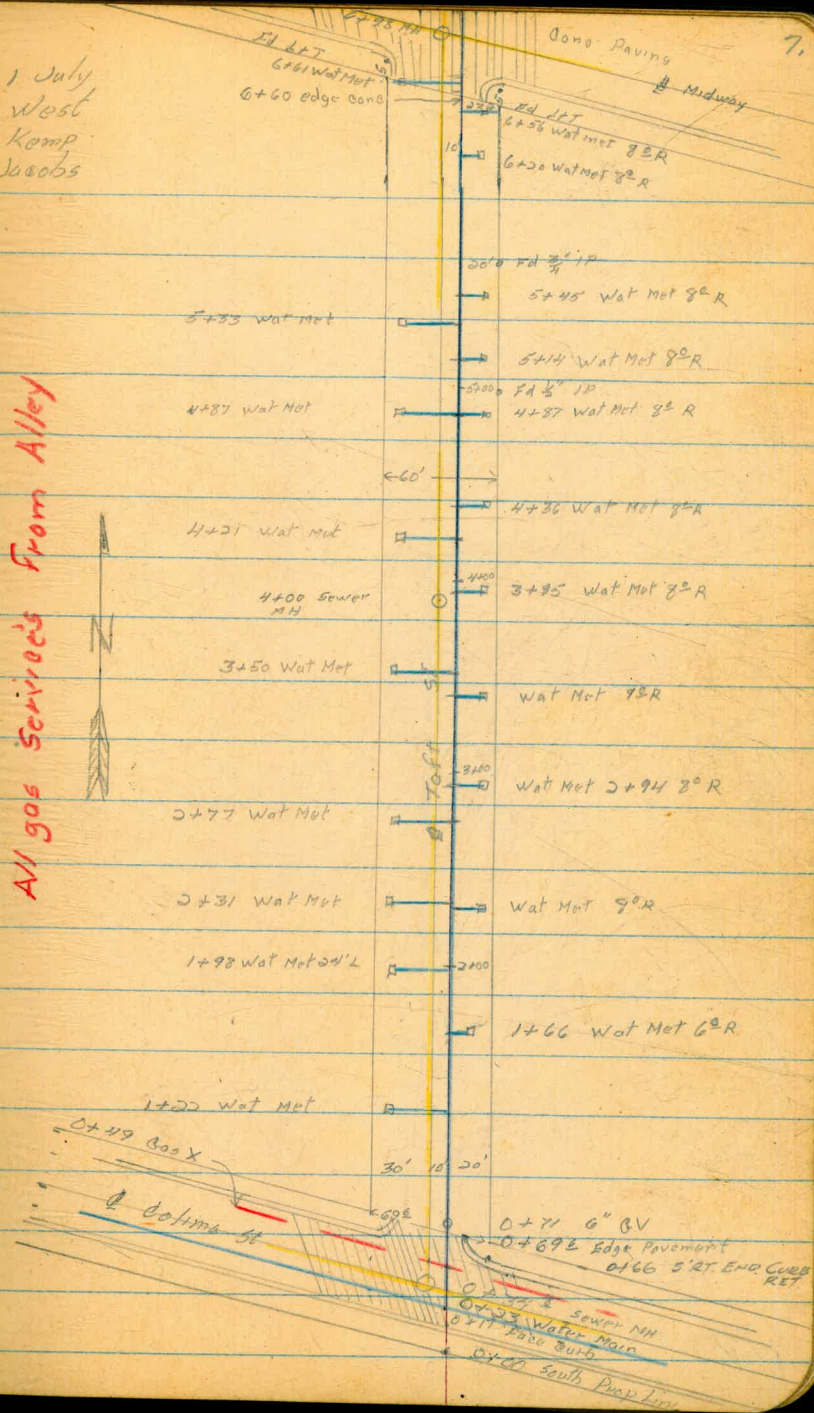 7.
1 July
West
Kemp
Jacobs
6+98 MH
Conc Paving
℄ Midway
Fd L&T
6+61 Wat Met
6+60 edge conc
Fd L&T
6+56 Wat met 8º R
10'
6+20 Wat Met 8º R
20' Fd 3/4" IP
5+45 Wat Met 8º R
5+33 Wat Met
5+14 Wat Met 8º R
5+00 Fd 1/2" IP
4+87 Wat Met
4+87 Wat Met 8º R
60'
4+36 Wat Met 8º R
4+21 Wat Met
4+00
4+00 Sewer
MH
3+95 Wat Met 8º R
3+50 Wat Met
Wat Met 9º R
℄ Taft St
3+00
Wat Met 2+94 8º R
2+77 Wat Met
2+31 Wat Met
Wat Met 8º R
1+98 Wat Met 24' L
2+00
1+66 Wat Met 6º R
1+22 Wat Met
All gas Services From Alley
N
0+49 Gas X
30' 10' 20'
℄ Colima St
0+71 6" GV
0+69 Edge Pavement
0+66 5' RT. END. CURB
RET.
℄ Sewer MH
0+23 Water Main
0+17 Face Curb
0+00 South Prop Line